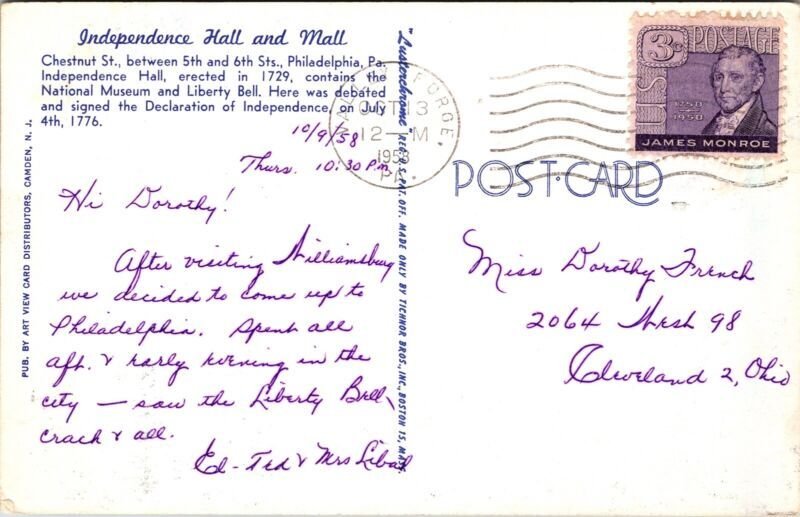 Independence Hall and Mall
Chestnut St., between 5th and 6th Sts., Philadelphia, Pa.
Independence Hall, erected in 1729, contains the
National Museum and Liberty Bell. Here was debated
and signed the Declaration of Independence, on July
4th, 1776.
10/9/58
Thurs. 10:30 P.m.
Hi Dorothy!
After visiting Williamsburg
we decided to come up to
Philadelphia. Spent all
aft. & early evening in the
city — saw the Liberty Bell,
crack & all.
Ed - Ted & Mrs Libal
PUB. BY ART VIEW CARD DISTRIBUTORS, CAMDEN, N. J.
"Lusterchrome" REG. U. S. PAT. OFF. MADE ONLY BY TICHNOR BROS., INC., BOSTON 15, MASS.
VALLEY FORGE,
OCT 13
12 - M
1958
PA.
3¢ POSTAGE
U.S.
1758
1958
JAMES MONROE
POST CARD
Miss Dorothy French
2064 West 98
Cleveland 2, Ohio